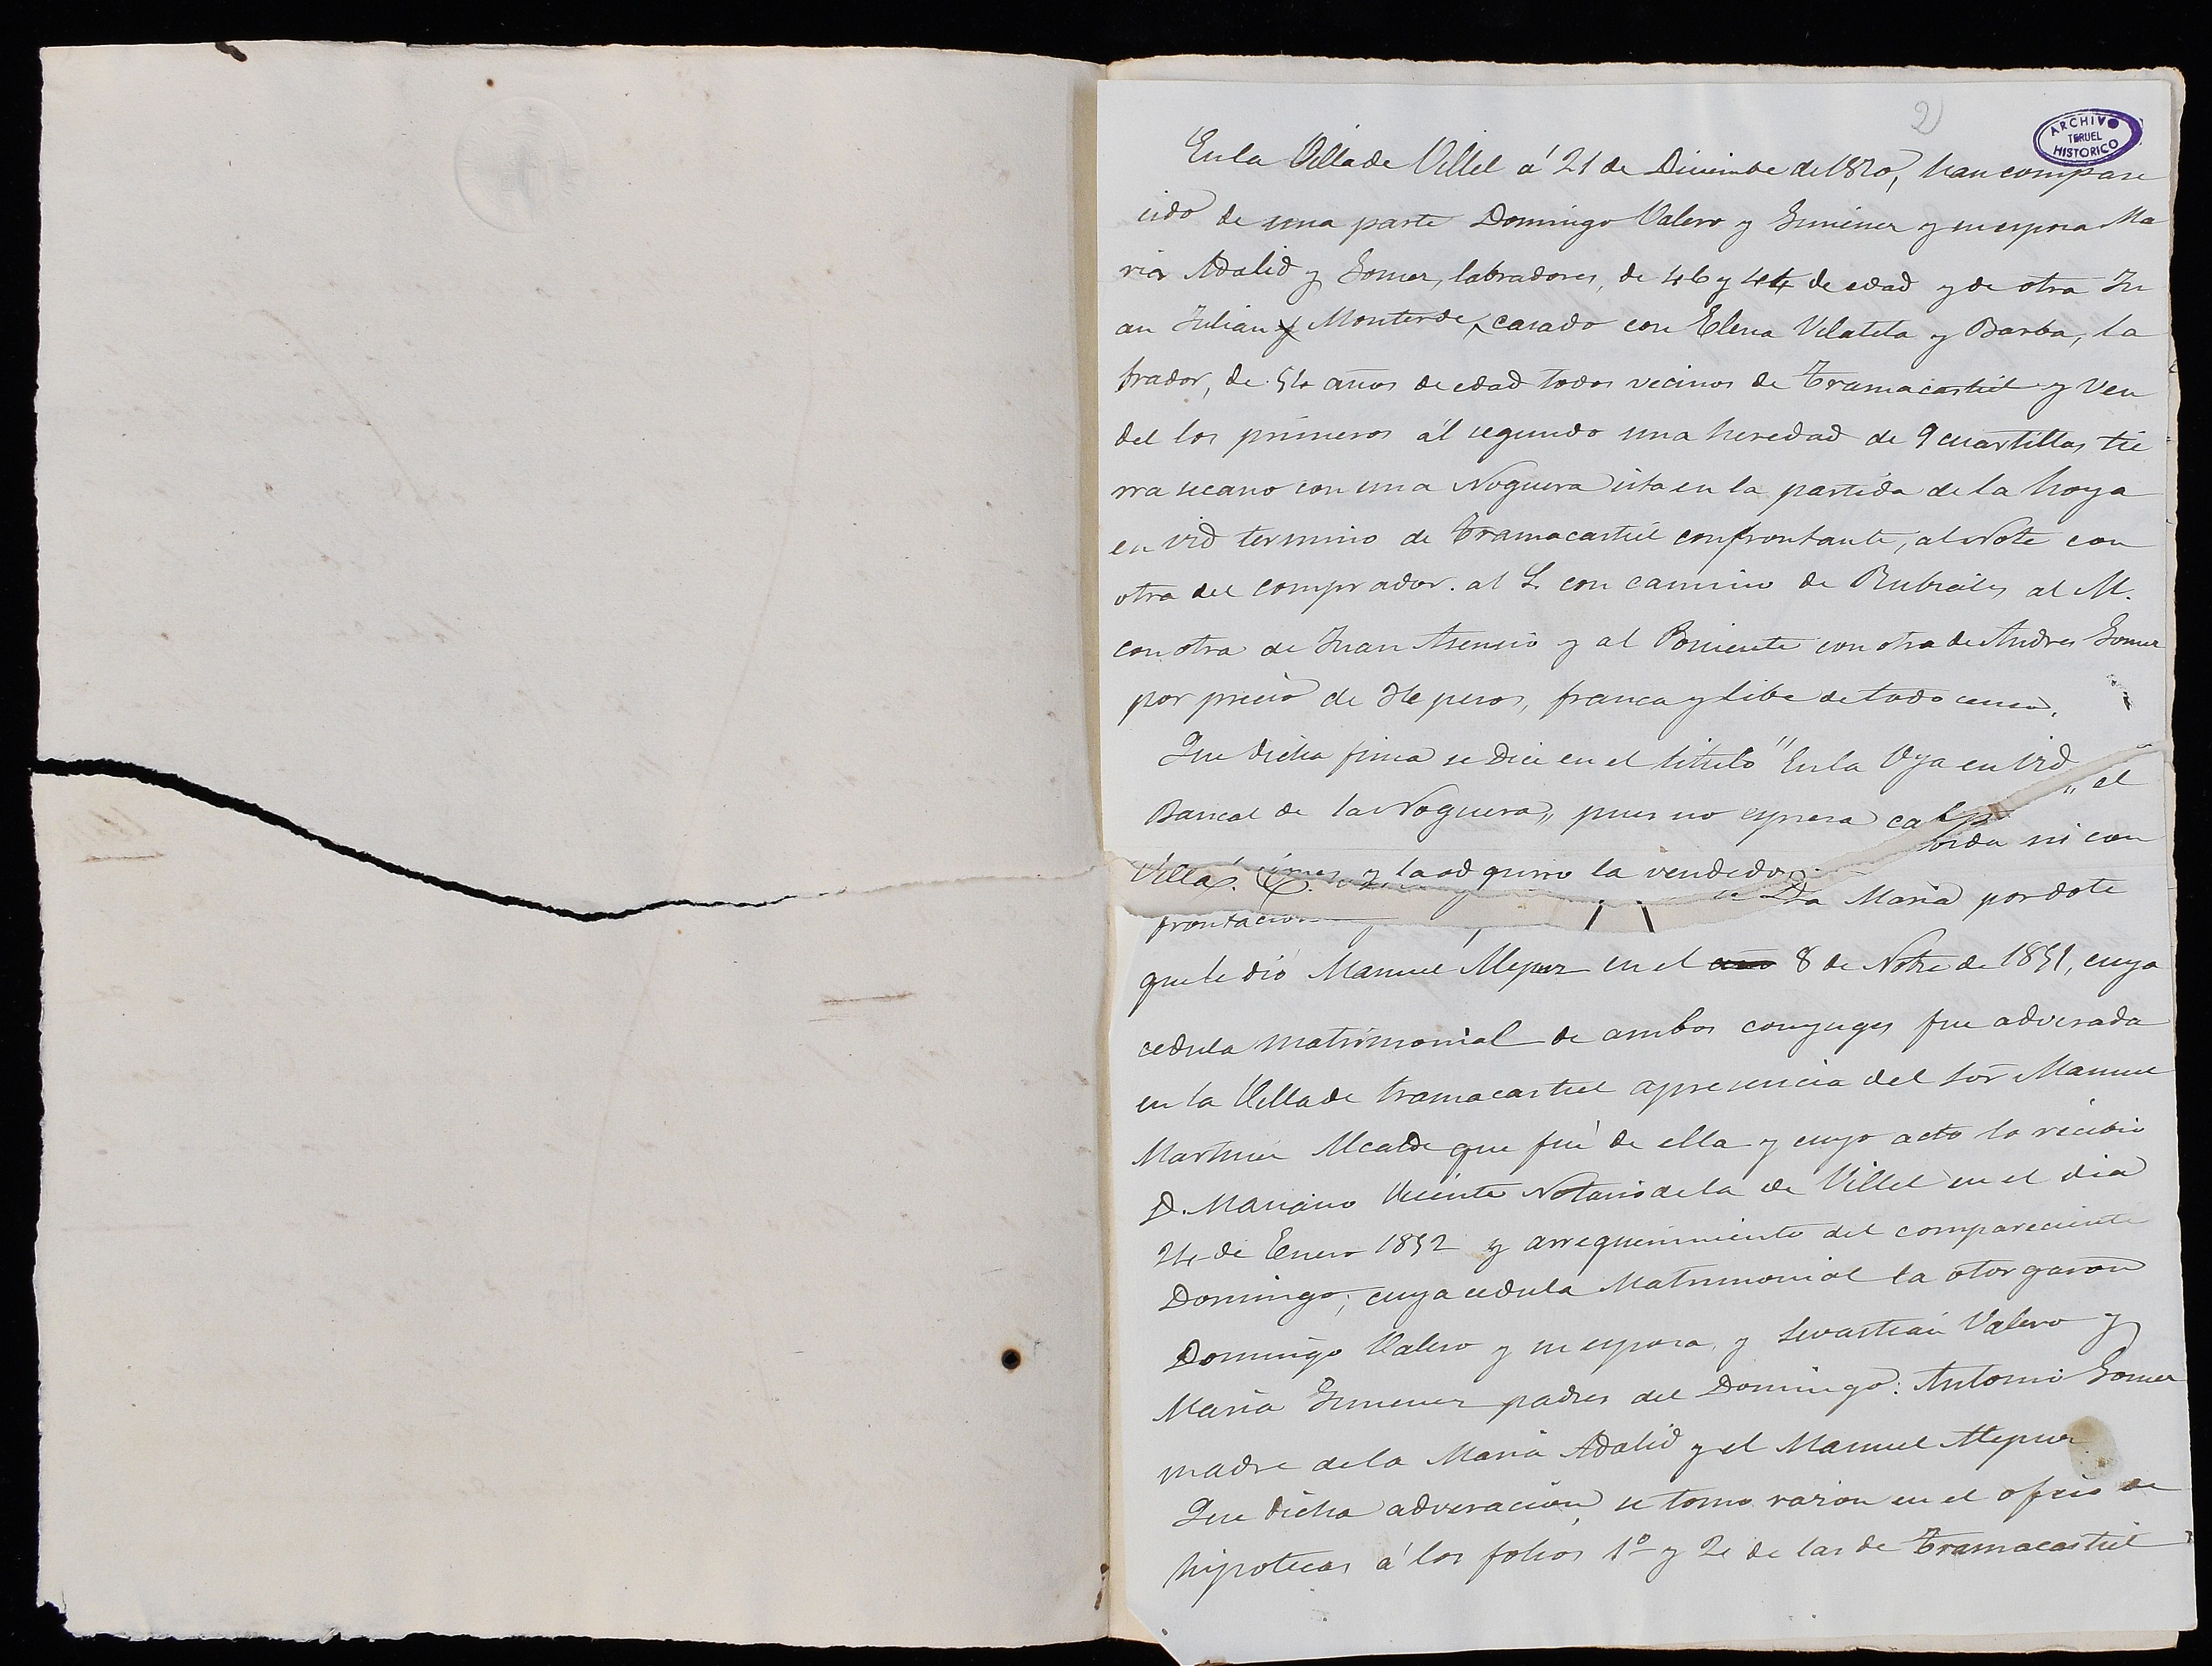 2
ARCHIVO
TERUEL
HISTORICO
En la Villa de Villel á 21 de Diciembre de 1870, han compare
cido de una parte Domingo Valero y Gimenez y su esposa Ma
ria Adalid y Gomez, labradores, de 46 y 44 de edad y de otra Ju
an Julian y Monterde, casado con Elena Vilatela y Barba, la
brador, de 54 años de edad todos vecinos de Tramacastiel y Ven
del los primeros ál segundo una heredad de 9 cuartillas tie
rra secano con una Noguera sita en la partida de la hoya
en vid termino de Tramacastiel confrontante, al Note con
otra del comprador. al L. con camino de Rubiales al M.
con otra de Juan Asensio y al Poniente con otra de Andres Gomez
por precio de 36 pesos, franca y libe de todo censo.
Que dicha finca se dice en el titulo "En la Oya en vid el
Bancal de la Noguera,, pues no espresa cabida ni con
Villa
frontaciones y la adquirio la vendedora Maria por dote
que le dió Manuel Alepuz en el 8 de Nobre de 1851, cuya
cedula matrimonial de ambos conyuges fue adverada
en la Villa de tramacastiel apresencia del Sor Manuel
Martinez Alcalde que fué de ella y cuyo acto lo recibió
D. Mariano Vicente Notario de la de Villel en el dia
24 de Enero 1852 y arrequerimiento del compareciente
Domingo; cuya cedula Matrimonial la otorgaron
Domingo Valero y su esposa, y Sevastian Valero y
Maria Gimenez padres del Domingo: Antonia Gomez
madre de la Maria Adalid y el Manuel Alepuz
Que dicha adveracion, se tomo razon en el oficio de
hipotecas á los folios 1º y 2º de las de Tramacastiel